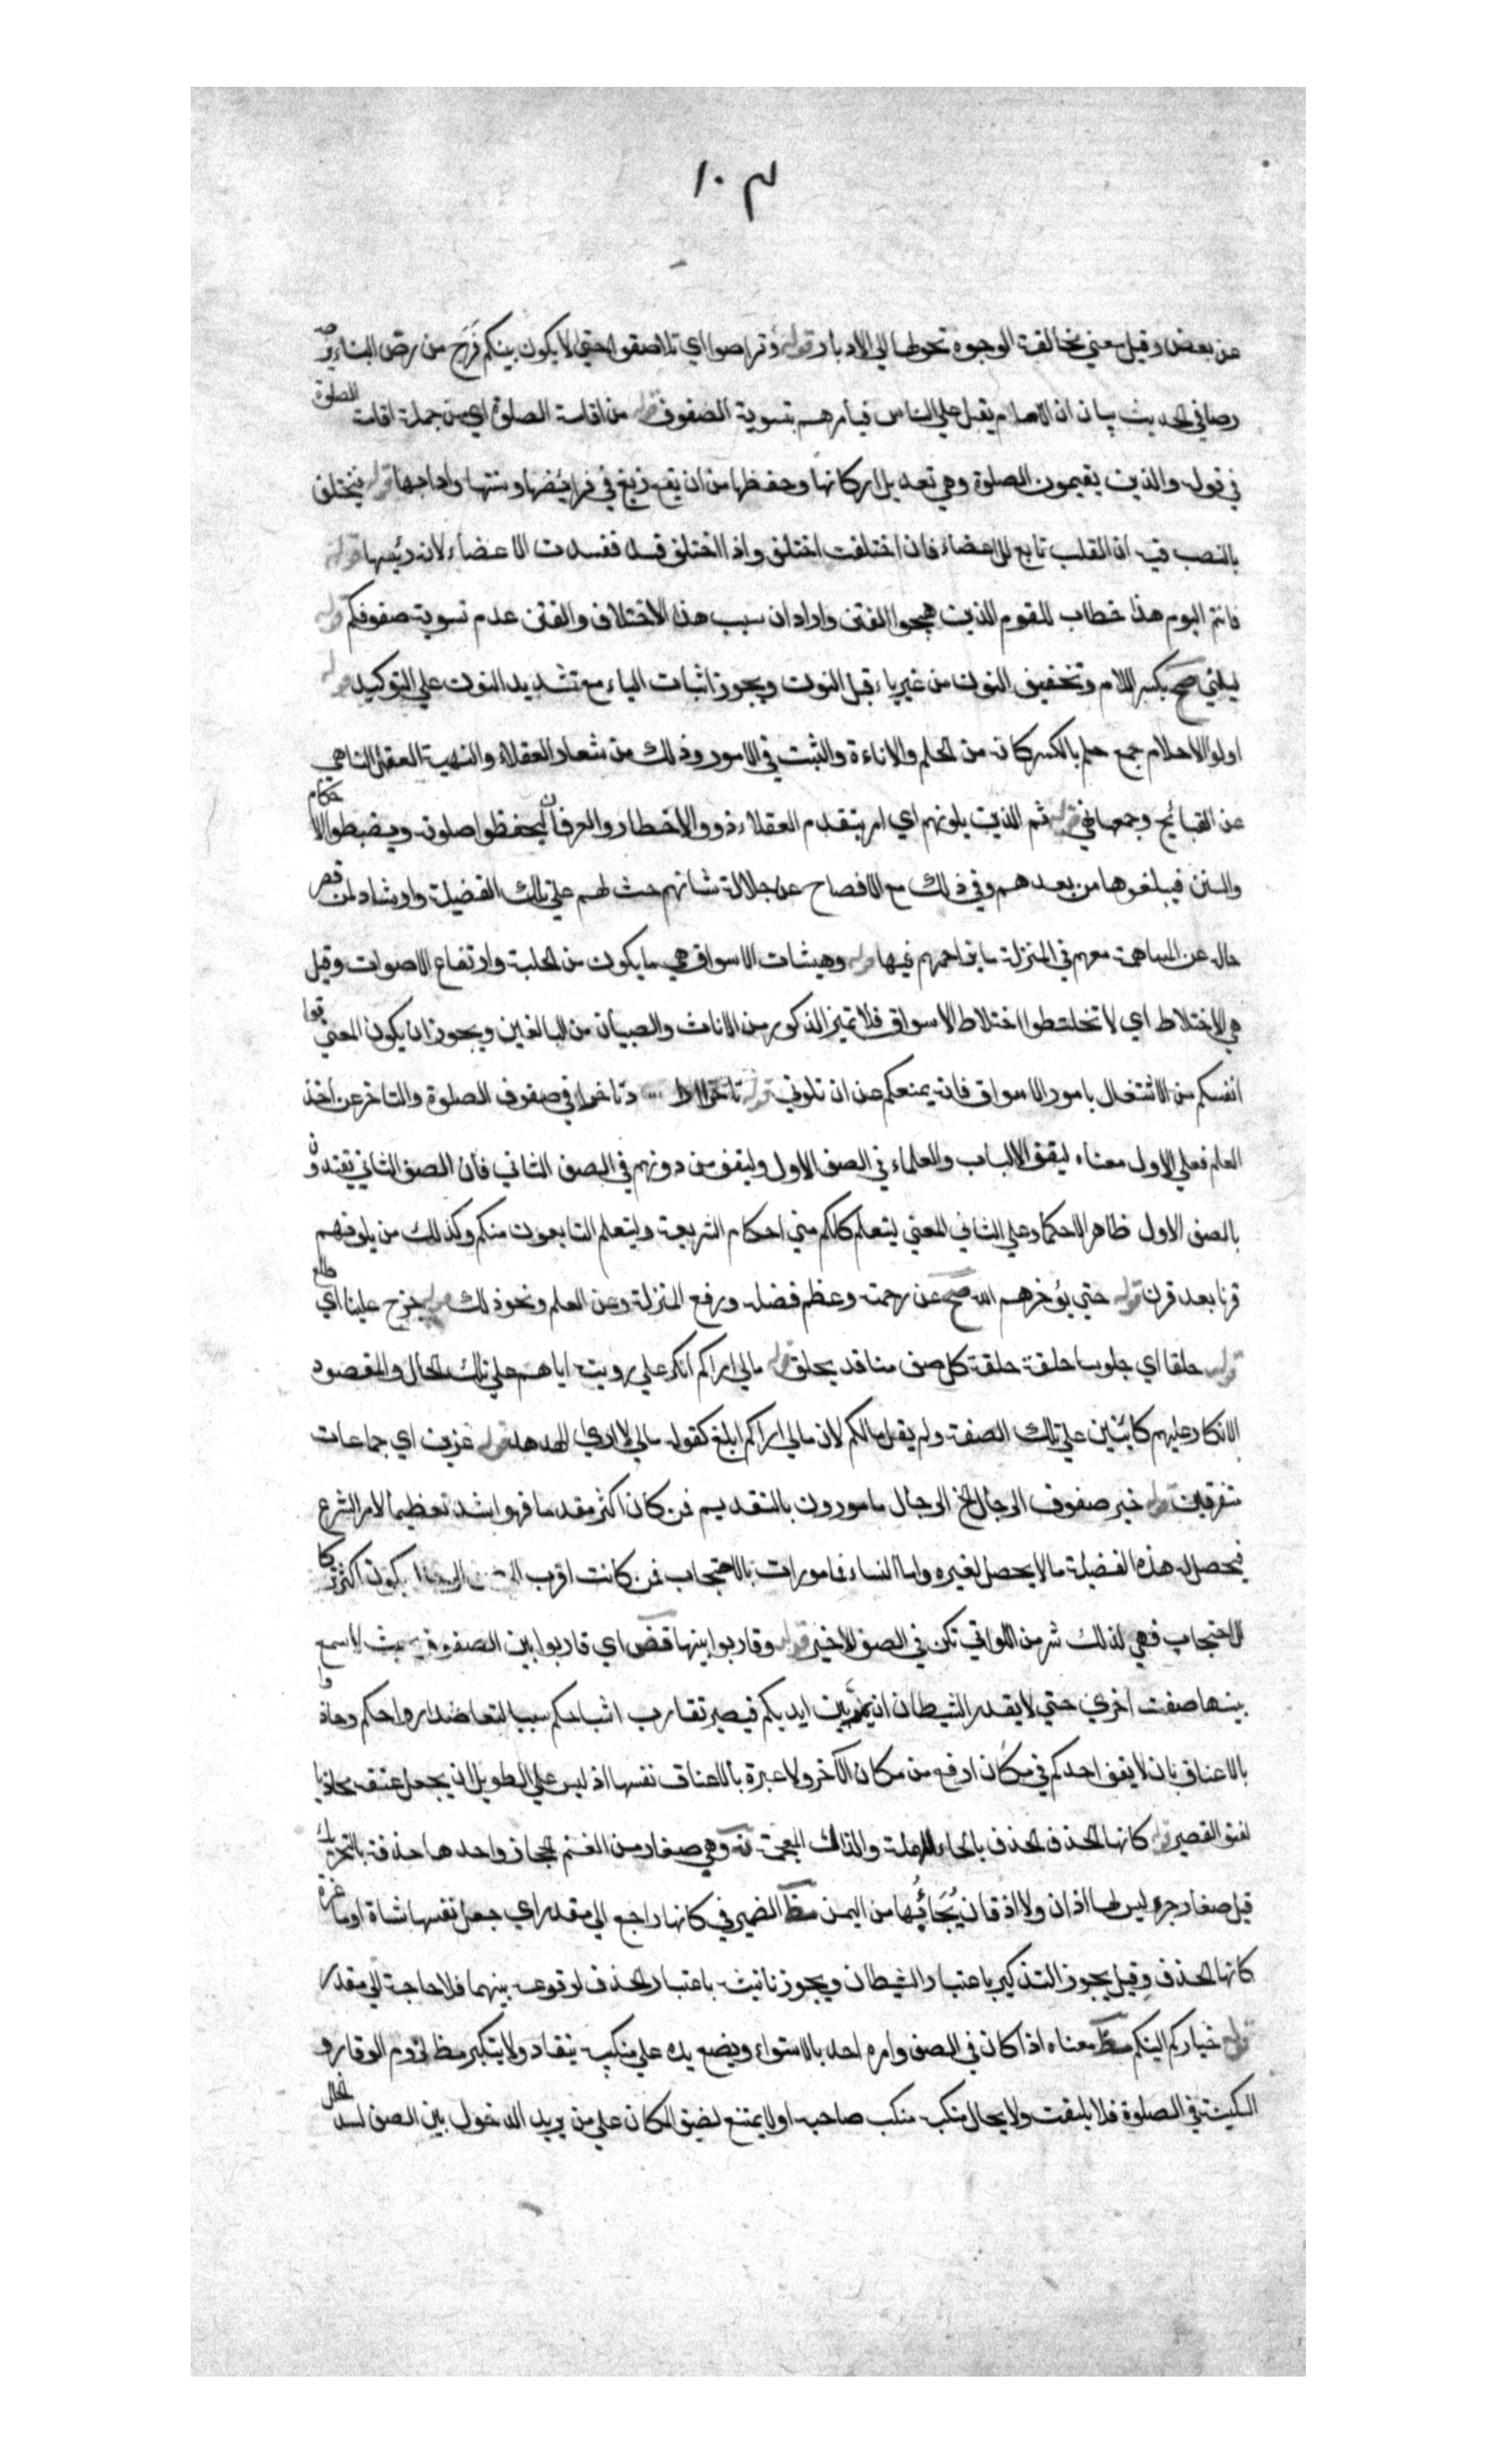 ١٠٣
عن بعض وقيل معني مخالفة الوجوه تحولها الي الادبار قوله وتراصوا اي تلاصقوا حتي لا يكون بينكم فرج من رص البناء يرصه
رصا في الحديث بيان ان الامام يقبل علي الناس فيأمرهم بتسوية الصفوف قوله من اقامة الصلوة اي من جملة اقامة الصلوة
في قوله والذين يقيمون الصلوة وهي تعديل اركانها وحفظها من ان يقع زيغ في فرائضها وسننها وادابها قوله فيختلف
بالنصب فيه ان القلب تابع للاعضاء فان اختلفت اختلف واذا اختلف فسد ففسدت الاعضاء لانه رئيسها قوله
فانتم اليوم هذا خطاب للقوم الذين هيجوا الفتن واراد ان سبب هذا الاختلاف والفتن عدم تسوية صفوفكم قوله
ليلني صح بكسر اللام وتخفيف النون من غير ياء قبل النون ويجوز اثبات الياء مع تشديد النون علي التوكيد قوله
اولوا الاحلام جمع حلم بالكسر كانه من الحلم والاناءة والثبت في الامور وذلك من شعار العقلاء والنهية العقل الناهي
عن القبائح وجمعها نهي قوله ثم الذين يلونهم اي امر بتقدم العقلاء ذوو الاخطار والعرفان ليحفظوا صلوته ويضبطوا الاحكام
والسنن فيبلغوها من بعدهم وفي ذلك مع الافصاح عن جلالة شانهم حث لهم علي تلك الفضيلة وارشاد لمن قصر
حاله عن المساهمة معهم في المنزلة ما يزاحمهم فيها قوله وهيشات الاسواق هي ما يكون من الجلبة وارتفاع الاصوات وقيل
هي الاختلاط اي لا تختلطوا اختلاط الاسواق فلا تميز الذكور من الاناث والصبيان من البالغين ويجوز ان يكون المعني قوا
انفسكم من الاشتغال بامور الاسواق فانه يمنعكم عن ان تلوني قوله تاخرا الظ وتاخرا في صفوف الصلوة والتاخر عن اخذ
العلم فعلي الاول معناه ليقف الالباب والعلماء في الصف الاول وليقف من دونهم في الصف الثاني فان الصف الثاني يقتدون
بالصف الاول ظاهرا لا حكما وعلي الثاني المعني ليتعلم كلكم مني احكام الشريعة وليتعلم التابعون منكم وكذلك من يلونهم
قرنا بعد قرن قوله حتي يؤخرهم الله صح عن رحمته وعظم فضله ورفع المنزلة وعن العلم ونحو ذلك قوله خرج علينا اي طلع
قوله حلقا اي جلوسا حلقة حلقة كل صف منا قد يحلق قوله مالي اراكم انكر علي رويته اياهم علي تلك الحال والمقصود
الانكار عليهم كائنين علي تلك الصفة ولم يقل مالكم لان مالي اراكم ابلغ كقوله مالي لا اري الهدهد قوله عزين اي جماعات
متفرقين قوله خير صفوف الرجال الخ الرجال مامورون بالتقديم فمن كان اكثر مقدما فهو اشد تعظيما لامر الشرع
فيحصل له هذه الفضيلة ما لا يحصل لغيره واما النساء فمامورات بالاحتجاب فمن كانت اقرب الي صف الرجال يكون اكثر تركا
للاحتجاب فهي لذلك شر من اللواتي تكن في الصف الاخير قوله وقاربوا بينها قض اي قاربوا بين الصفوف بحيث لا يسع
بينها صفت اخري حتي لا يقدر الشيطان ان يمر بين ايديكم فيصير تقارب اشباحكم سببا لتعاضد ارواحكم وحاذوا
بالاعناق بان لا يقف احدكم في مكان ارفع من مكان الآخر ولا عبرة بالاعناق نفسها اذ ليس علي الطويل ان يجعل عنقه محاذيا
لعنق القصير قوله كانها الحذف الحذف بالحاء المهملة والذال المعجمة وهي صغار من الغنم الحجاز واحدها حذفة بالتحريك
قيل صغار جرد ليس لها اذان ولا اذقان يُجَاءُ بها من اليمن مظ الضمير في كانها راجع الي مقدر اي جعل نفسها شاة او ماعزة
كانها الحذف وقيل يجوز التذكير باعتبار الشيطان ويجوز تانيثه باعتبار الحذف لوقوعه بينهما فلا حاجة الي مقدر
قوله خياركم الينكم مظ معناه اذا كان في الصف وامره احد بالاستواء ويضع يده علي منكبه ينقاد ولا يتكبر مظ لزوم الوقار و
السكينة في الصلوة فلا يلتفت ولا يحال منكبه منكب صاحبه اولا يمتنع لضيق المكان علي من يريد الدخول بين الصف لسد الخلل